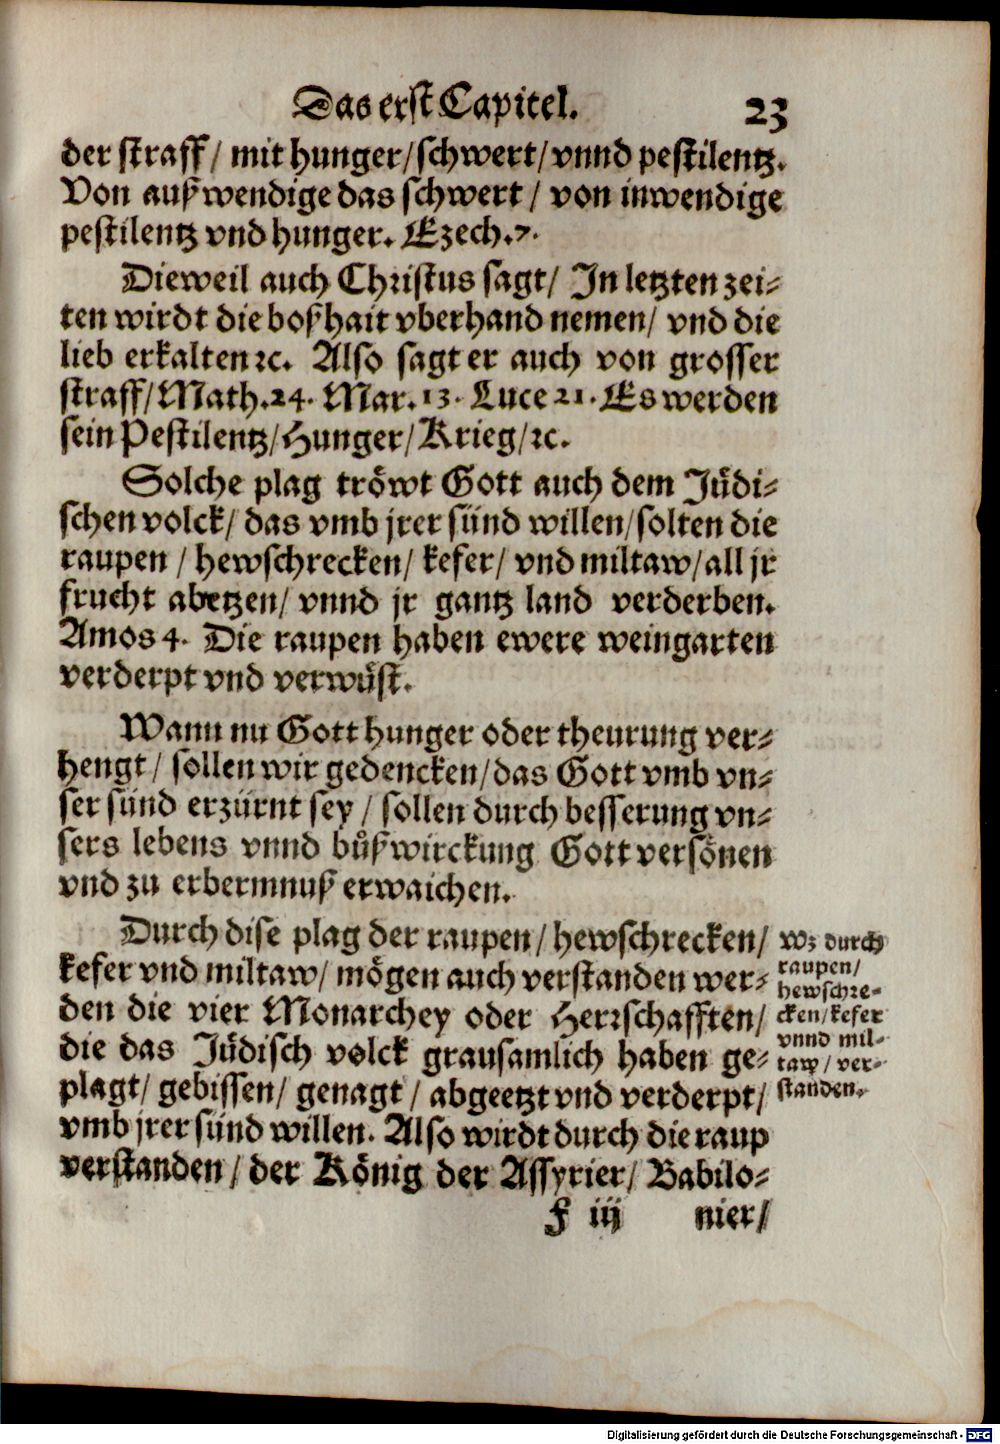 Das erst Capitel. 23
der straff / mit hunger / schwert / vnnd pestilentz.
Von außwendige das schwert / von inwendige
pestilentz vnd hunger. Ezech. 7.
Dieweil auch Christus sagt / In letzten zei⸗
ten wirdt die boßhait vberhand nemen / vnd die
lieb erkalten ꝛc. Also sagt er auch von grosser
straff / Math. 24. Mar. 13. Luce 21. Es werden
sein Pestilentz / Hunger / Krieg / ꝛc.
Solche plag tröwt Gott auch dem Jüdi⸗
schen volck / das vmb jrer sünd willen / solten die
raupen / hewschrecken / kefer / vnd miltaw / all jr
frucht abetzen / vnnd jr gantz land verderben.
Amos 4. Die raupen haben ewere weingarten
verderpt vnd verwüst.
Wann nu Gott hunger oder theurung ver⸗
hengt / sollen wir gedencken / das Gott vmb vn⸗
ser sünd erzürnt sey / sollen durch besserung vn⸗
sers lebens vnnd bůßwirckung Gott versönen
vnd zu erbermnuß erwaichen.
Durch dise plag der raupen / hewschrecken /
kefer vnd miltaw / mögen auch verstanden wer⸗
den die vier Monarchey oder Herrschafften /
die das Jüdisch volck grausamlich haben ge⸗
plagt / gebissen / genagt / abgeetzt vnd verderpt /
vmb jrer sünd willen. Also wirdt durch die raup
verstanden / der König der Assyrier / Babilo⸗
F iij nier /
Wz durch
raupen /
hewschre⸗
cken / kefer
vnnd mil⸗
taw / ver⸗
standen.
Digitalisierung gefördert durch die Deutsche Forschungsgemeinschaft - DFG